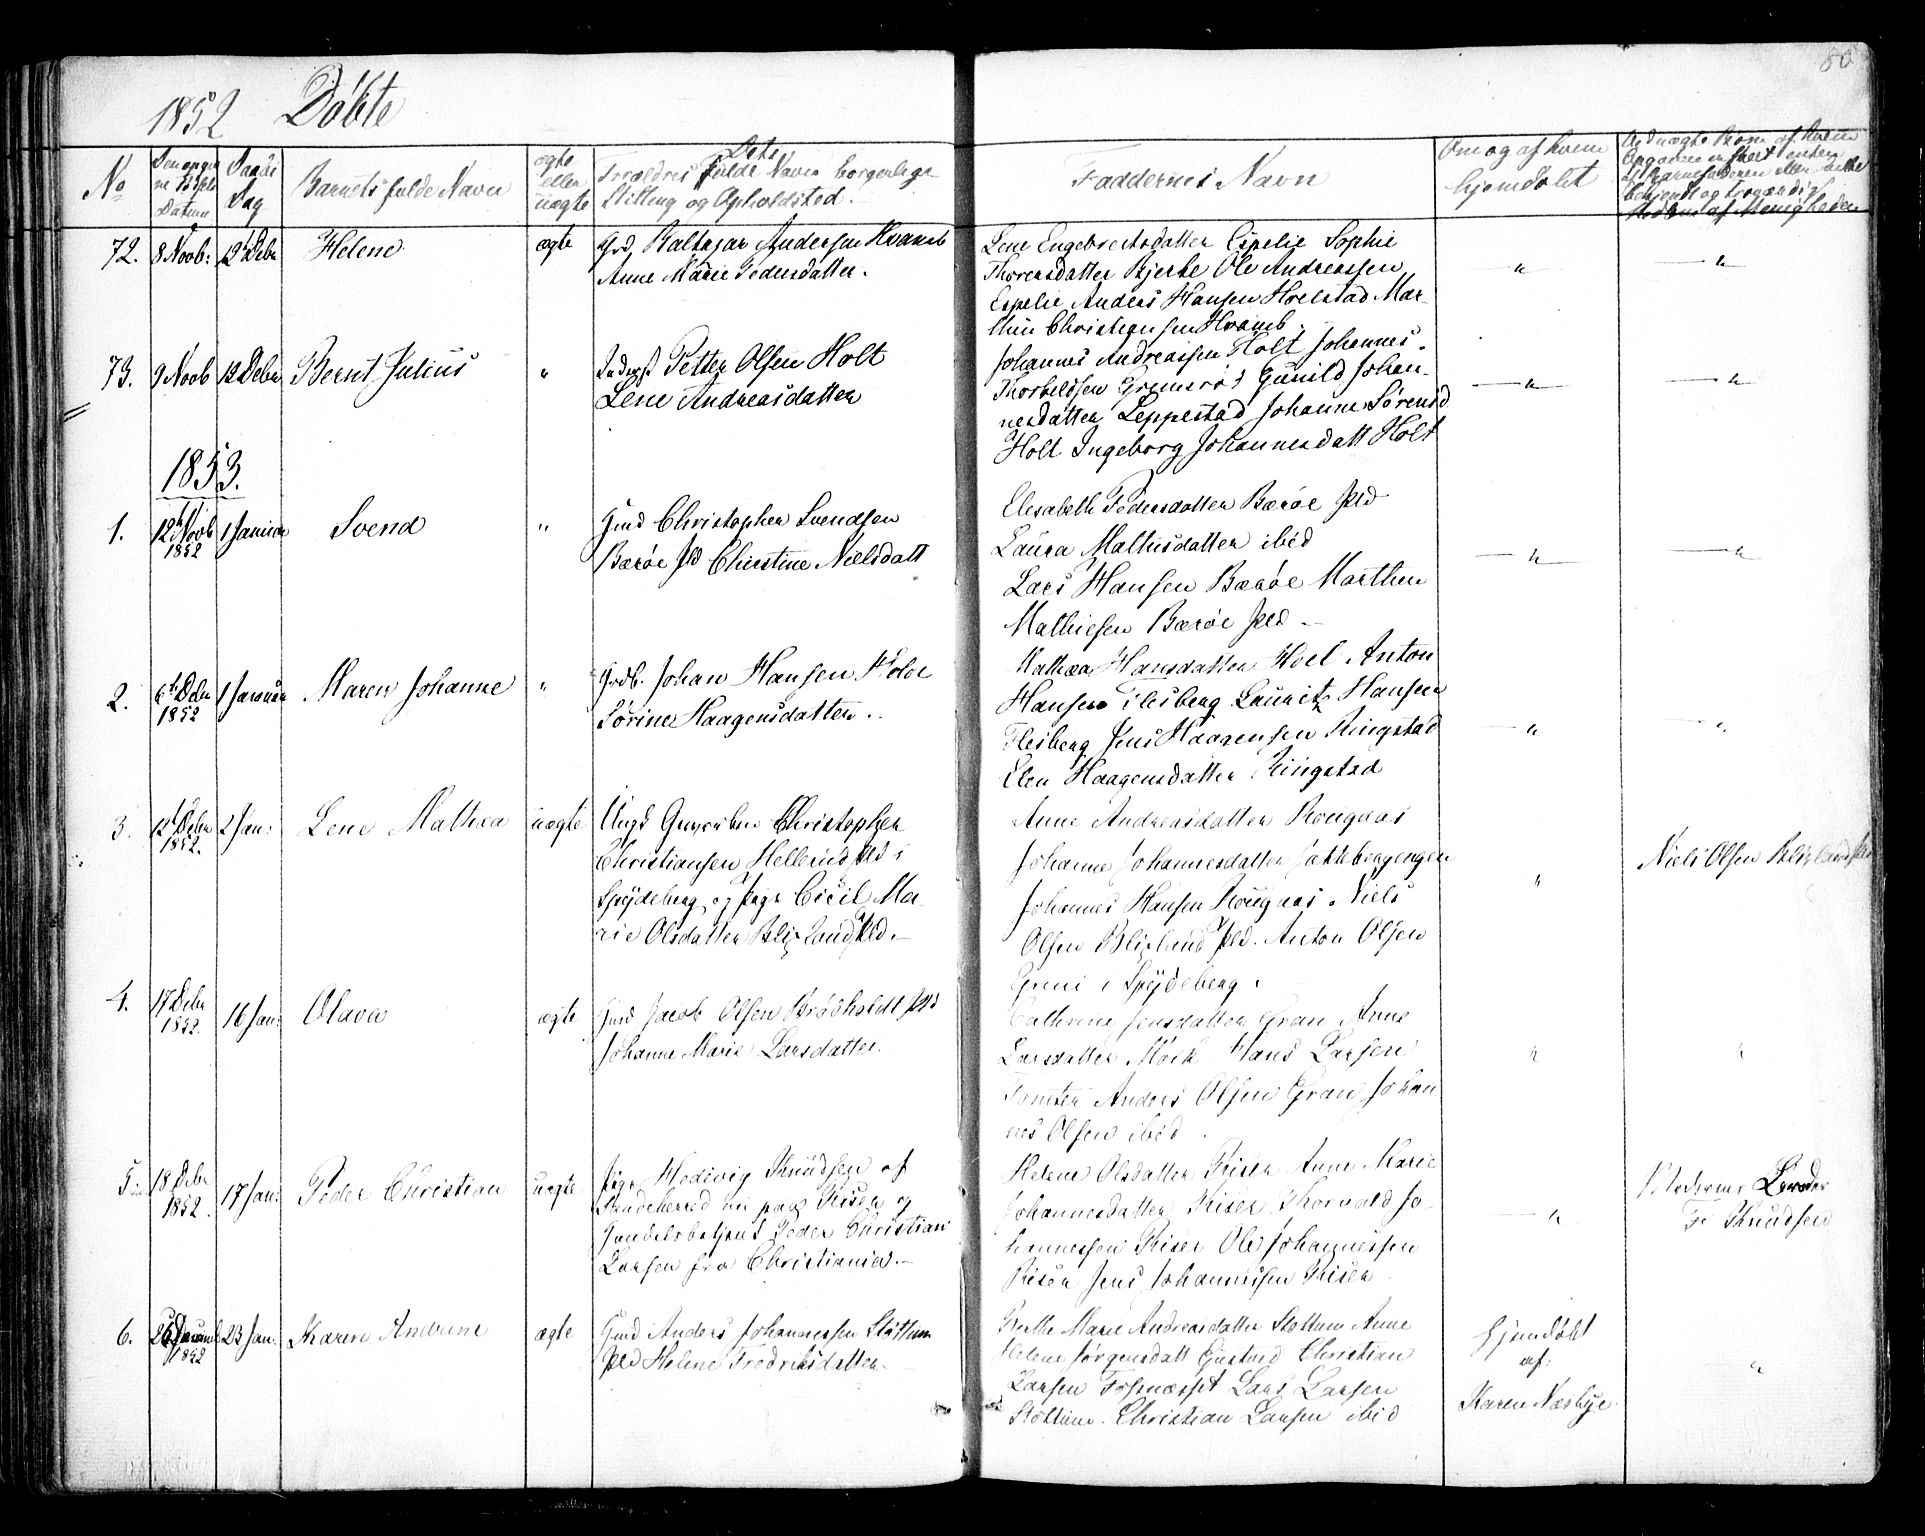 80
1852 Döbte
No
Daabs
Dag
Barnets fulde Navn
ægte
eller
uægte
Dets
Forældres fulde Navn borgerlige
Stilling og Opholdsted.
Faddernes Navn
Om og af hvem
hjemdöbt
72. 8 Novb: 12 Debr Helene ægte Grd Baltazar Andersen Hvamb
Anne Marie Pedersdatter.
Lene Engebretsdatter Espelie Sophie
Thorersdatter Bjerke Ole Andreassen
Espelie Anders Hansen Hoelstad Mar-
thin Christiansen Hvamb.
73. 9 Novb 12 Debr Bernt Julius " Petter Olsen Holt
Lene Andreasdatter
Johannes Andreassen Holt Johannes
Thorkeldsen Grimsröd Gunild Johan-
nesdatter Leppestad Johanne Sörensd
Holt Ingeborg Johannesdatt Holt
1853.
1. 12 Novb 1852 1 Januar Svend " Gmd Christopher Svendsen
Baröe Pld Christine Nielsdatt
Elisabeth Pedersdatter Baröe Pld
Laura Mathisdatter ibid
Lars Hansen Baröe Marthin
Mathiesen Baröe Pld
2. 6 Debr 1852 1 Januar Maren Johanne " Grdb. Johan Hansen Hoel
Sörine Haagensdatter.
Mathea Hansdatter Hoel Anton
Hansen Flesberg Lauritz Hansen
Flesberg Jens Haagensen Ringstad
Elen Haagensdatter Ringstad
3. 12 Debr 1852. 2 Jan: Lene Mathea uægte Ungk Christopher
Christiansen Hellerud Pld i
Spydeberg og Pige Cicil Ma-
rie Olsdatter Blixland Pld.
Anne Andreasdatter Rougaas
Johanne Johannesdatter Jakkebergengen
Johannes Hansen Rougaas. Niels
Olsen Blixland Pld. Anton Olsen
i Spydeberg.
Niels Olsen Blixland Pld
4. 17 Debr 1852. 16 Jan: Olava ægte Gmd Jacob Olsen Brödholdt Pld
Johanne Marie Larsdatter.
Cathrine Jensdatter Gran Anne
Larsdatter Mörk Hans Larsen
Tomter Anders Olsen Gran Johan
nes Olsen ibid.
5. 18 Debr 1852. 17 Jan: Peder Christian uægte Pige Hedevig Knudsen af
Sandeherred nu paa Riser og
Handelsbetjent Peder Christian
Larsen fra Christiania.
Helene Olsdatter Riser Anne Marie
Johannesdatter Riser Thorvald Jo-
hannessen Riser Ole Johannessen
Riser Jens Johannessen Riser
Moderens Broder
F. Knudsen
6. 26 Decemb 1852 23 Jan: Karen Andrine ægte Gmd Anders Johannessen Stöttum
Pld Helene Fredriksdatter.
Berthe Marie Andreasdatter Stöttum Anne
Helene Jörgensdatt Christian
Larsen Lars Larsen
Stöttum. Christian Larsen ibid
Hjemdöbt
af:
Karen Næsbye.